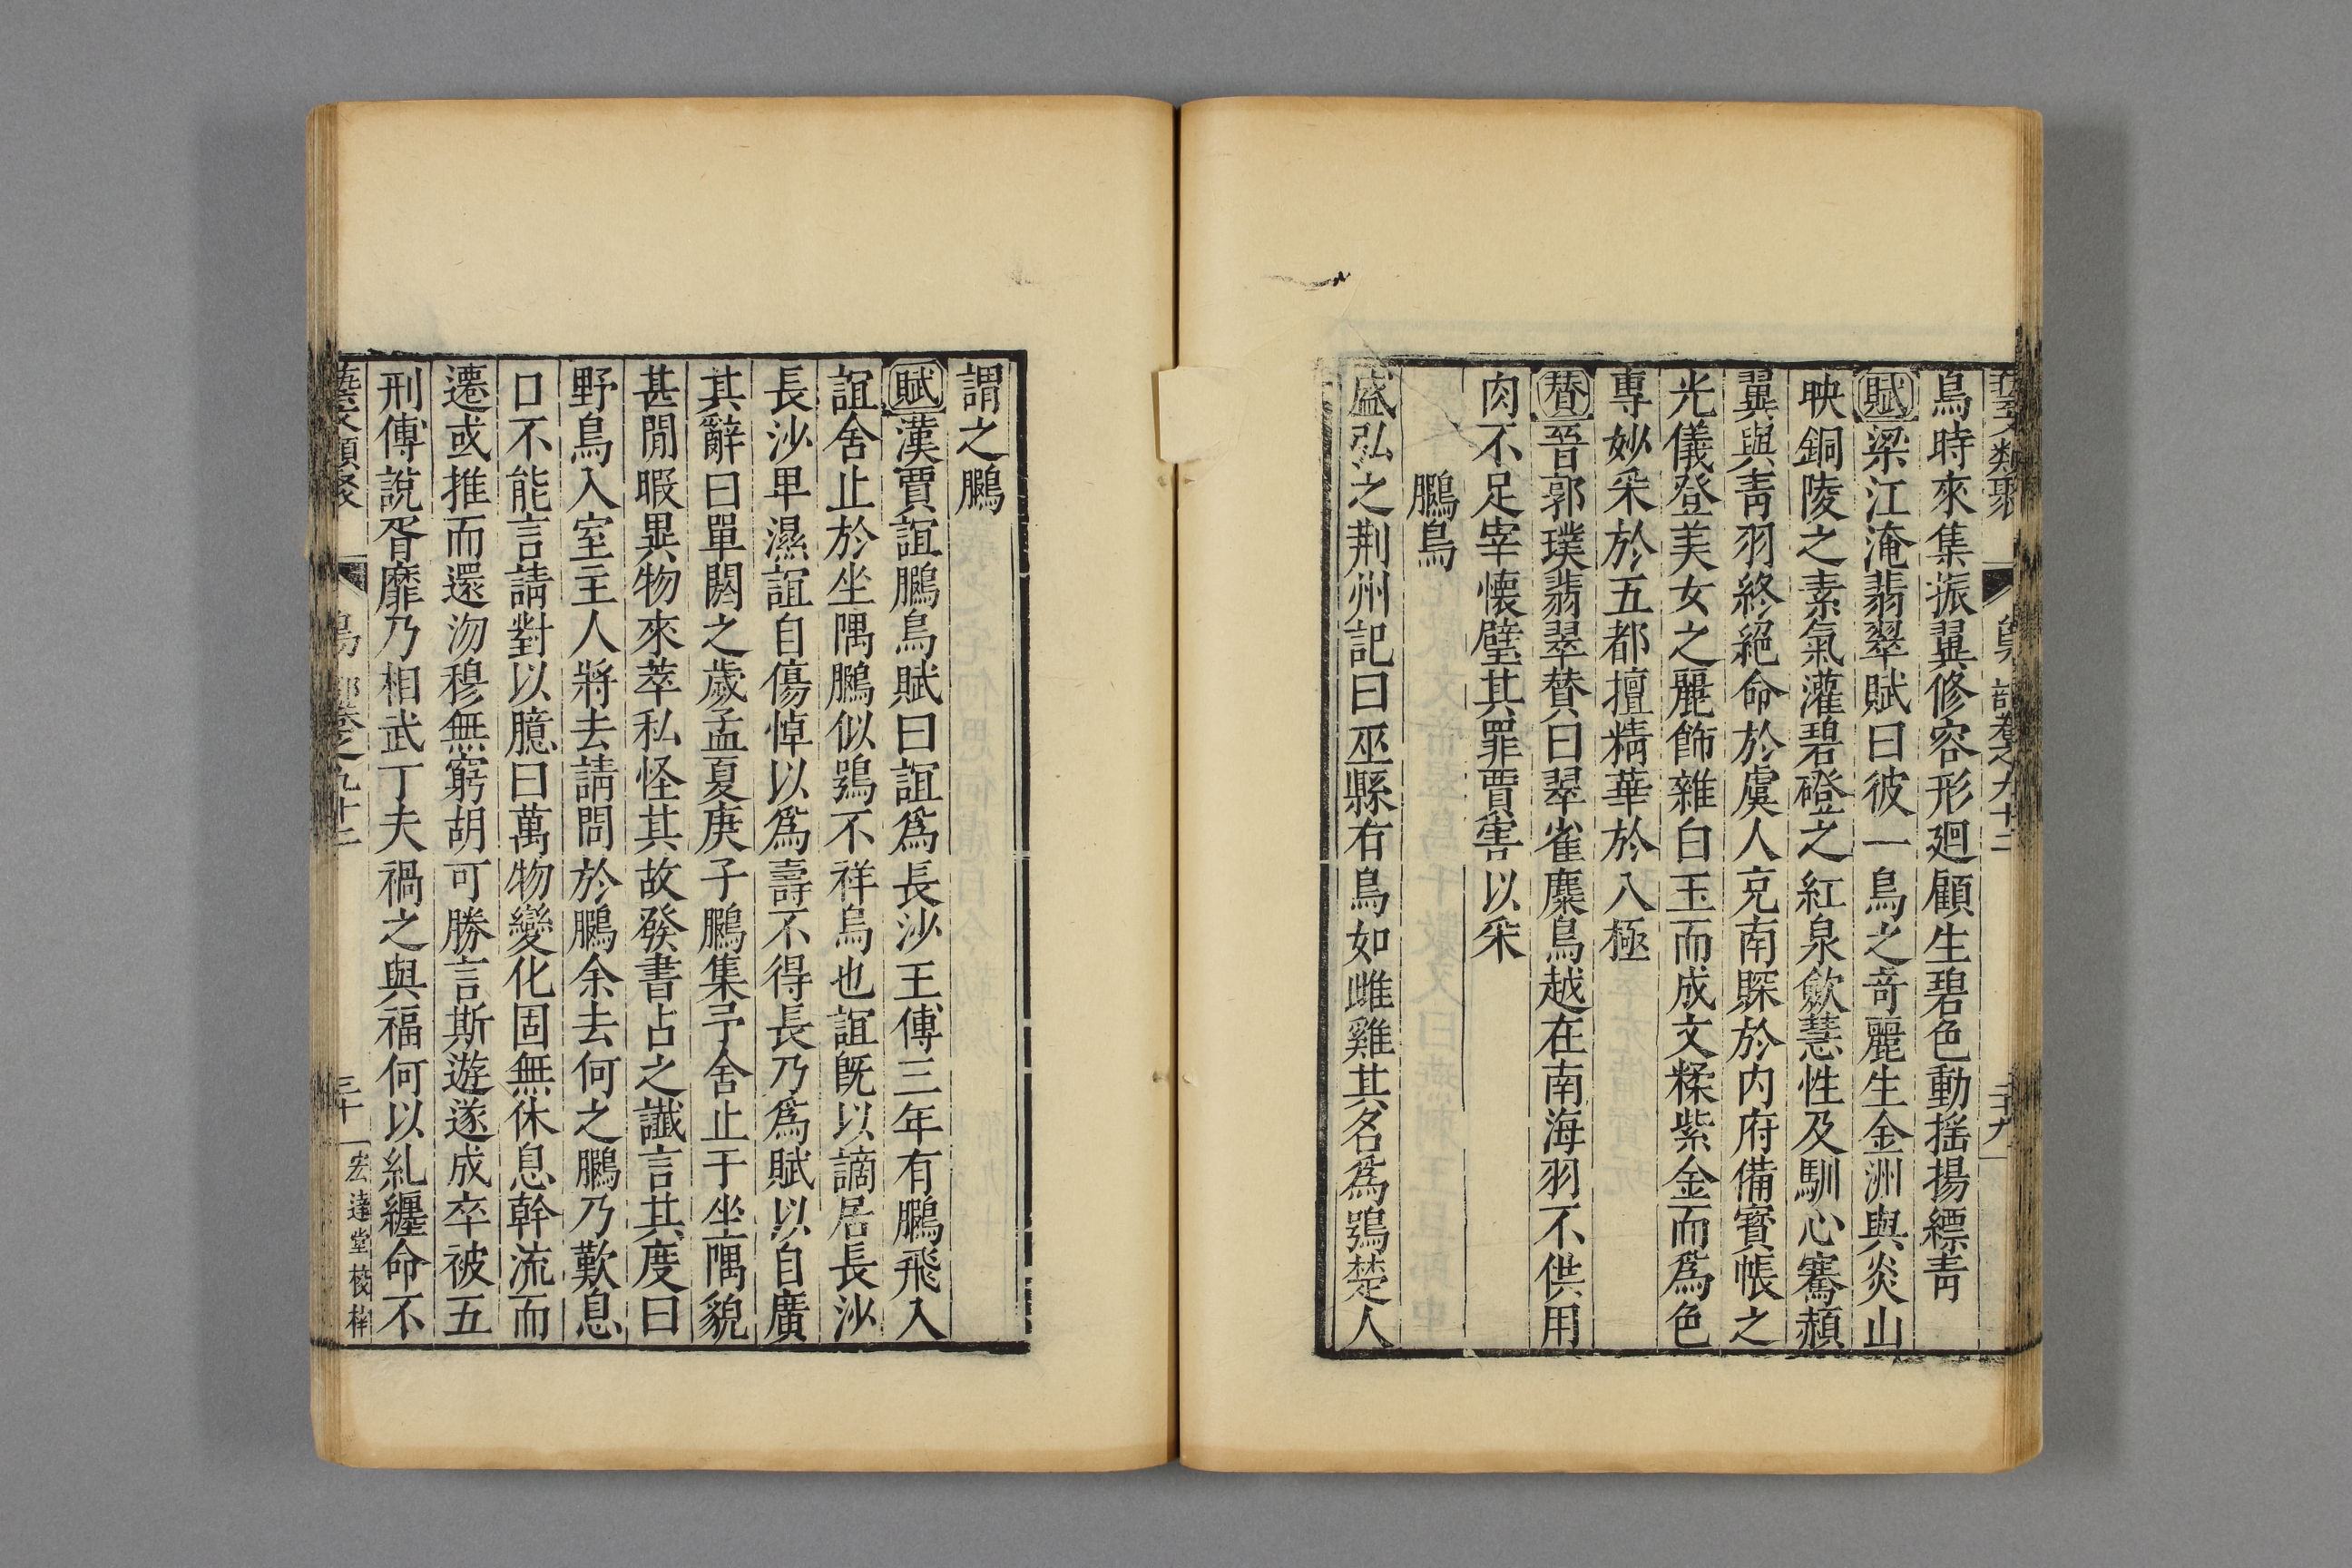 藝文類聚 鳥部卷之九十二 二十九
鳥時來集振翼修容形廻顧生碧色動揺揚縹青
賦梁江淹翡翠賦曰彼一鳥之竒麗生金洲與炎山
映銅陵之素氣灌碧磴之紅泉歛慧性及馴心騫赬
翼與青羽終絕命於虞人克南賝於内府備寳帳之
光儀登美女之麗飾雜白玉而成文糅紫金而爲色
專妙采於五都擅精華於八極
賛晉郭璞翡翠賛曰翠雀麋鳥越在南海羽不供用
肉不足宰懷璧其罪賈害以采
鵩鳥
盛弘之荆州記曰巫縣有鳥如雌雞其名爲鴞楚人
謂之鵩
賦漢賈誼鵩鳥賦曰誼爲長沙王傅三年有鵩飛入
誼舍止於坐隅鵩似鴞不祥鳥也誼旣以謫居長沙
長沙卑濕誼自傷悼以爲壽不得長乃爲賦以自廣
其辭曰單閼之歲孟夏庚子鵩集予舍止于坐隅貌
甚閒暇異物來萃私怪其故發書占之讖言其度曰
野鳥入室主人將去請問於鵩余去何之鵩乃歎息
口不能言請對以臆曰萬物變化固無休息斡流而
遷或推而還沕穆無窮胡可勝言斯遊遂成卒被五
刑傅說胥靡乃相武丁夫禍之與福何以糺纆命不
藝文類聚 鳥部卷之九十二 三十 宏達堂校梓